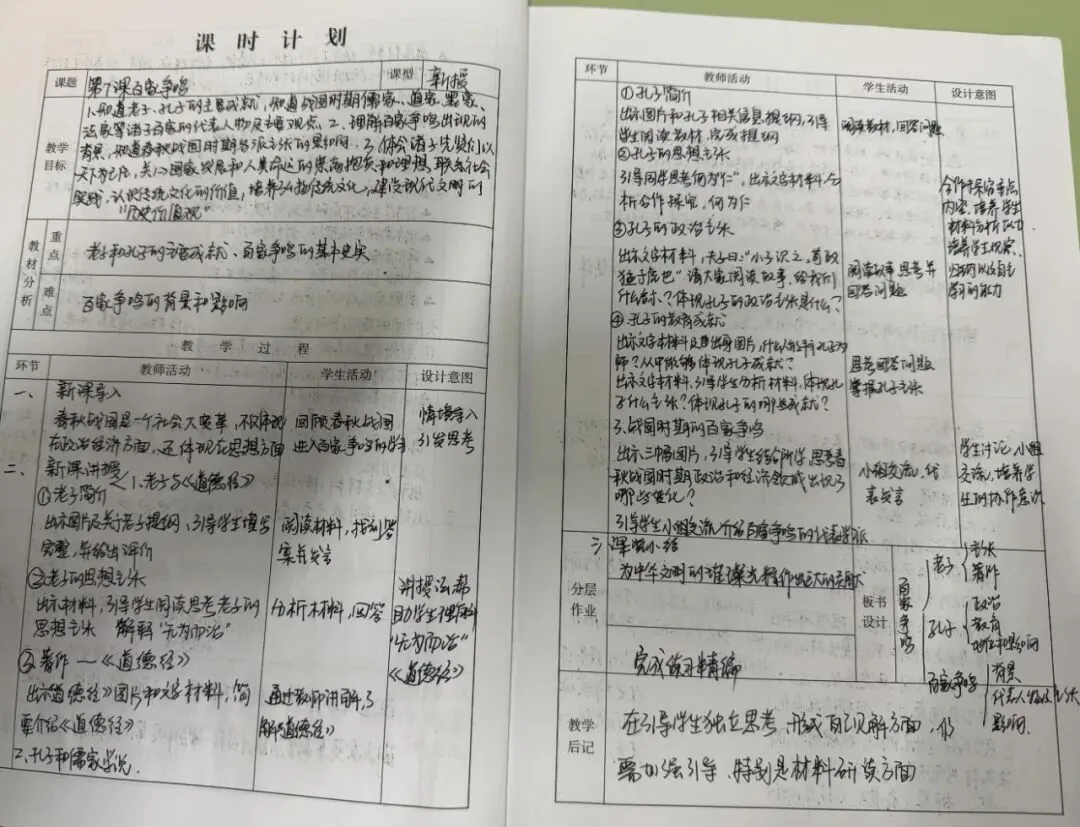 课时计划
课题 第7课百家争鸣 课型 新授
教学目标
1.知道老子、孔子的主要成就,知道战国时期儒家、道家、墨家、
法家等诸子百家的代表人物及主要观点。2.理解百家争鸣出现的
背景,知道春秋战国时期各派主张的影响。3.体会诸子先贤们以
天下为己任,关心国家发展和人类命运的崇高抱负和理想,联系社会
实践,认识传统文化的价值,培养弘扬传统文化,建设现代文明的
"历史价值观"
教材分析
重点 老子和孔子的主要成就、百家争鸣的基本史实
难点 百家争鸣的背景和影响
教学过程
环节 教师活动 学生活动 设计意图
一、新课导入
春秋战国是一个社会大变革,不仅体现 回顾春秋战国 情境导入
在政治经济方面,还体现在思想方面 进入百家争鸣的学习 引发思考
二、新课讲授 1.老子与《道德经》
①老子简介
出示图片及关于老子提纲,引导学生填写 阅读材料,找到答
完整,并给出评价 案并发言
②老子的思想主张 讲授法帮
出示材料,引导学生阅读思考老子的 分析材料,回答 助学生理解
思想主张 解释"无为而治" "无为而治"
③著作——《道德经》 《道德经》
出示《道德经》图片和文字材料,简 通过教师讲解,了
要介绍《道德经》 解《道德经》
2.孔子和儒家学说.
环节 教师活动 学生活动 设计意图
①孔子简介
出示图片和孔子相关信息提纲,引导 阅读教材,回答问题
学生阅读教材,完成提纲
②孔子的思想主张
引导同学思考何为"仁",出示文字材料,分 合作探究重点
析合作探究,何为仁 内容,培养学生
③孔子的政治主张 材料分析能力
出示文字材料,夫子曰:"小子识之,苛政 培养学生观察、
猛于虎也"请大家阅读故事,给我们 阅读故事思考并 归纳以及自主
什么启示?体现孔子的政治主张是什么? 回答问题 学习的能力
④孔子的教育成就
出示文字材料及图片,什么人能拜孔子为
师?从中能够体现孔子成就? 思考回答问题
出示文字材料,引导学生分析材料,体现孔 掌握孔子主张
子什么主张?体现孔子的哪些成就?
3.战国时期的百家争鸣
出示三幅图片,引导学生结合所学,思考春 学生讨论,小组
秋战国时期政治和经济领域出现了 小组交流,代 交流,培养学
哪些变化? 表发言 生的协作意识
引导学生小组交流,介绍百家争鸣的代表学派
三、课堂小结
为中华文明的璀璨光辉作出巨大的贡献
分层作业
完成练习精编
板书设计
百家争鸣
老子 主张 著作
孔子 政治 教育 地位和影响
百家争鸣 背景 代表人物及主张 影响
教学后记
在引导学生独立思考,形成自己见解方面,仍
需加强引导、特别是材料研读方面